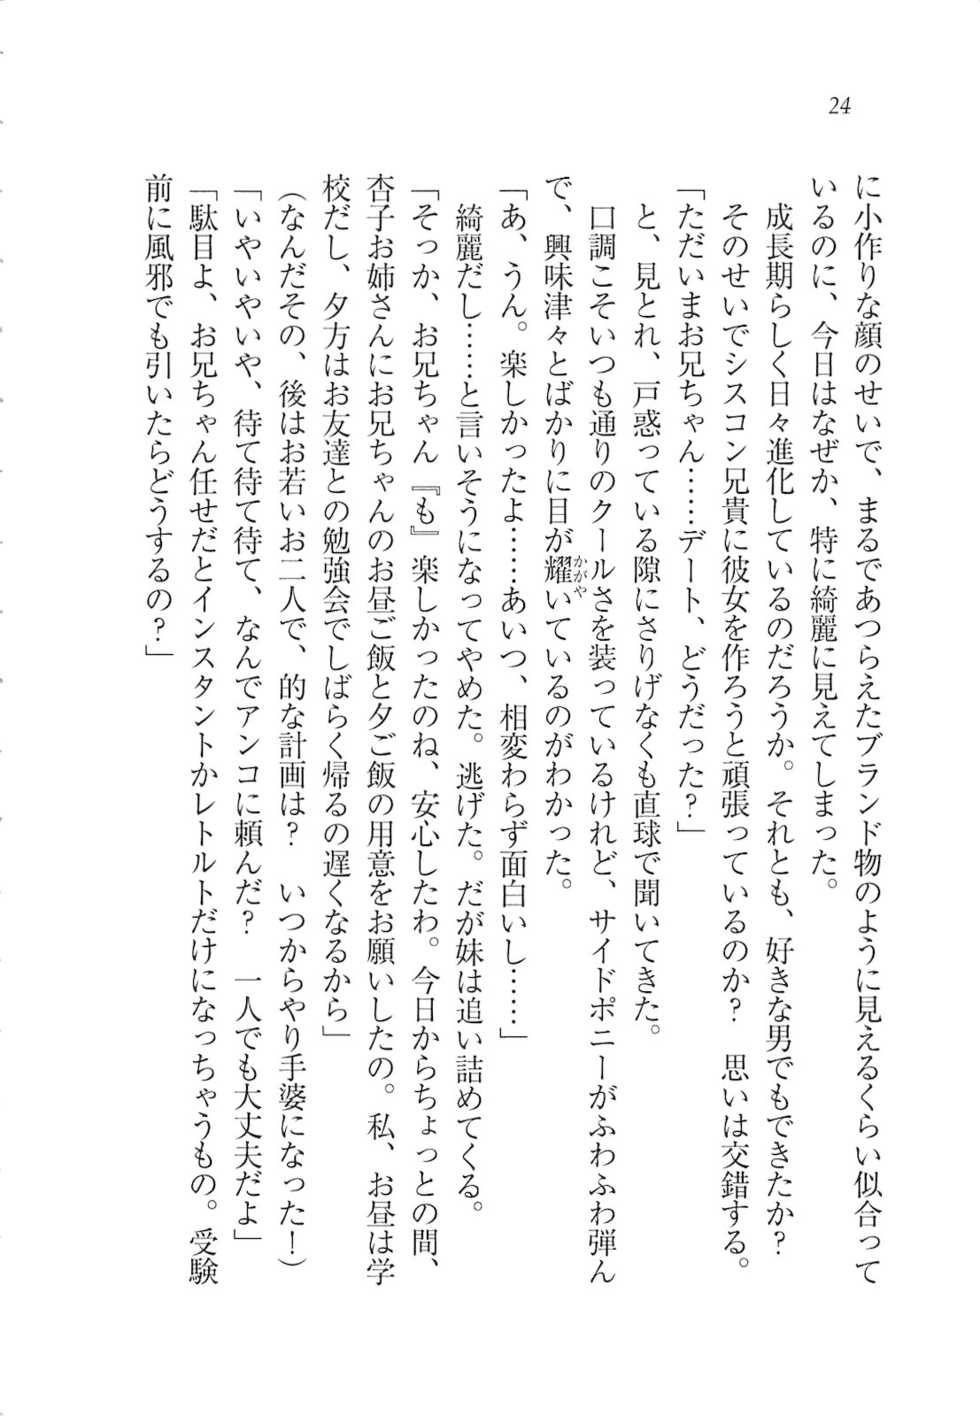 24
に小作りな顔のせいで、まるであつらえたブランド物のように見えるくらい似合って
いるのに、今日はなぜか、特に綺麗に見えてしまった。
成長期らしく日々進化しているのだろうか。それとも、好きな男でもできたか?
そのせいでシスコン兄貴に彼女を作ろうと頑張っているのか? 思いは交錯する。
「ただいまお兄ちゃん……デート、どうだった?」
と、見とれ、戸惑っている隙にさりげなくも直球で聞いてきた。
口調こそいつも通りのクールさを装っているけれど、サイドポニーがふわふわ弾ん
で、興味津々とばかりに目が耀いているのがわかった。
かがや
「あ、うん。楽しかったよ……あいつ、相変わらず面白いし……」
綺麗だし……と言いそうになってやめた。逃げた。だが妹は追い詰めてくる。
「そっか、お兄ちゃん『も』楽しかったのね、安心したわ。今日からちょっとの間、
杏子お姉さんにお兄ちゃんのお昼ご飯と夕ご飯の用意をお願いしたの。私、お昼は学
校だし、夕方はお友達との勉強会でしばらく帰るの遅くなるから」
(なんだその、後はお若いお二人で、的な計画は? いつからやり手婆になった!)
「いやいやいや、待て待て待て、なんでアンコに頼んだ? 一人でも大丈夫だよ」
「駄目よ、お兄ちゃん任せだとインスタントかレトルトだけになっちゃうもの。受験
前に風邪でも引いたらどうするの?」